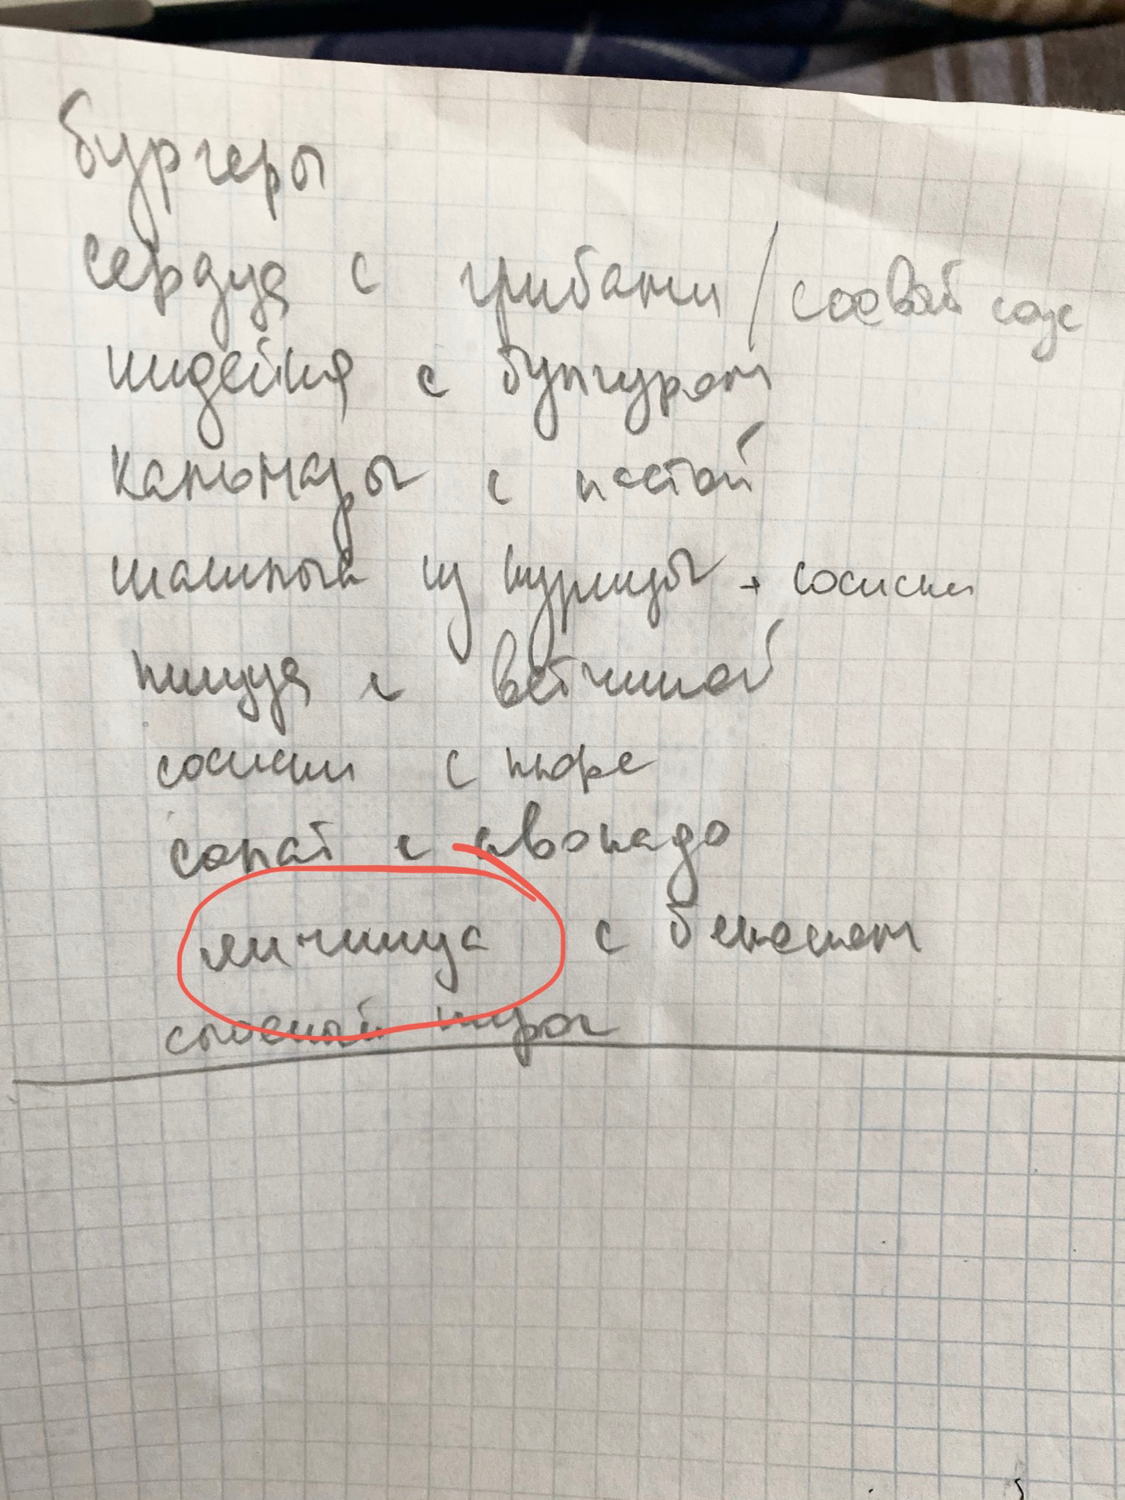 бургеры
сердца с грибами / соевый соус
индейка с булгуром
кальмары с пастой
шашлык из курицы + сосиски
пицца с ветчиной
сосиски с пюре
салат с авокадо
яичница с беконом
сырный пирог